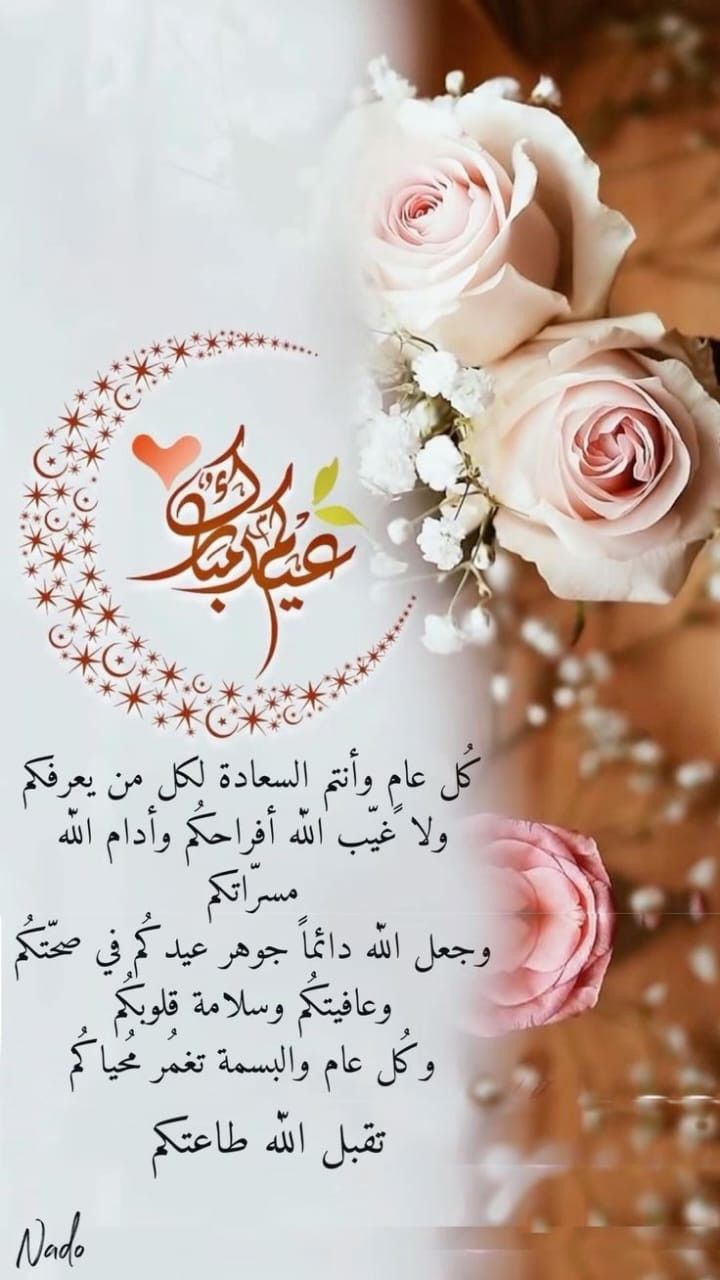 عيدكم مبارك
كُل عامٍ وأنتم السعادة لكل من يعرفكم
ولا غيّب الله أفراحكُم وأدام الله
مسرّاتكم
وجعل الله دائماً جوهر عيدكُم في صحّتكُم
وعافيتكُم وسلامة قلوبكُم
وكُل عام والبسمة تغمُر مُحياكُم
تقبل الله طاعتكم
Nado